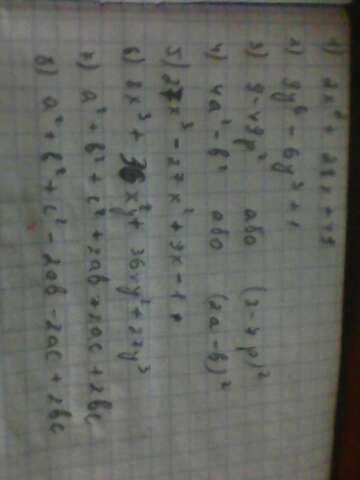 2) 9y⁶ - 6y³ + 1
3) 9 - 49p² або (3 - 7p)²
4) 4a² - b² або (2a - b)²
5) 27x³ - 27x² + 9x - 1
6) 8x³ + 36x²y + 36xy² + 27y³
7) a² + b² + c² + 2ab + 2ac + 2bc
8) a² + b² + c² - 2ab - 2ac + 2bc